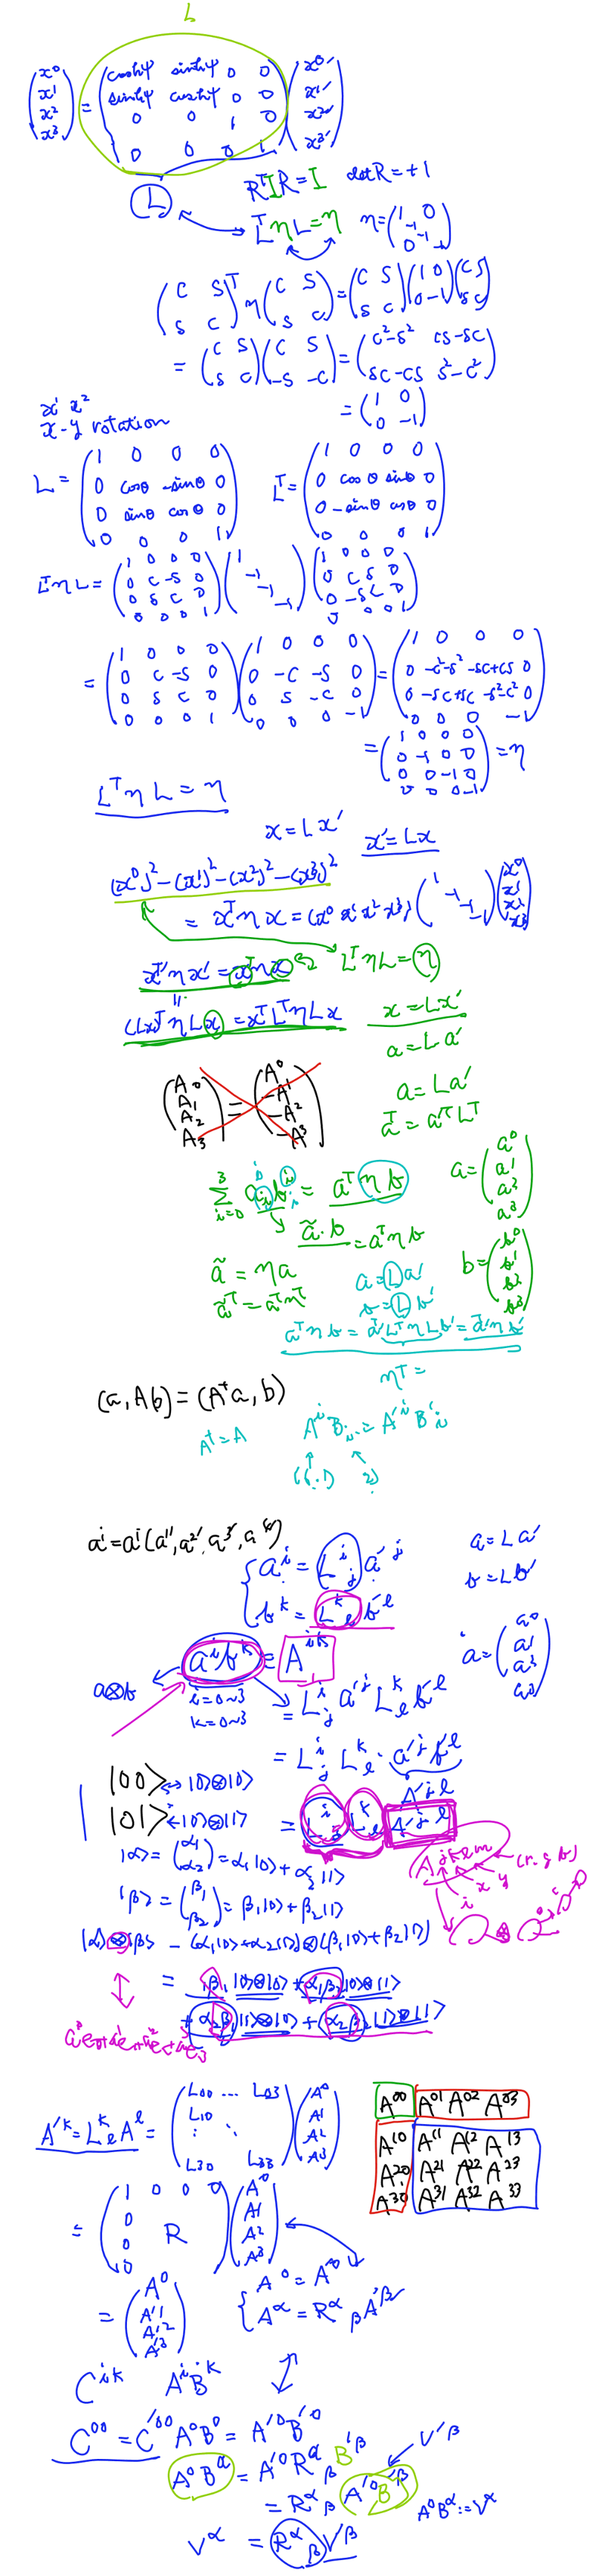 L
(x⁰ x¹ x² x³) = (coshψ sinhψ 0 0
sinhψ coshψ 0 0
0 0 1 0
0 0 0 1) (x⁰′ x¹′ x²′ x³′)
L
RᵀIR = I detR = +1
LᵀηL = η η = (1 0 -1 0 -1 -1)
(C S S C)ᵀ η (C S S C) = (C S S C)(1 0 0 -1)(C S S C)
= (C S S C)(C S -S -C) = (C²-S² CS-SC SC-CS S²-C²)
= (1 0 0 -1)
x¹ x²
x-y rotation
L = (1 0 0 0
0 cosθ -sinθ 0
0 sinθ cosθ 0
0 0 0 1)
Lᵀ = (1 0 0 0
0 cosθ sinθ 0
0 -sinθ cosθ 0
0 0 0 1)
LᵀηL = (1 0 0 0
0 C -S 0
0 S C 0
0 0 0 1) (1 -1 -1 -1) (1 0 0 0
0 C S 0
0 -S C 0
0 0 0 1)
= (1 0 0 0
0 C -S 0
0 S C 0
0 0 0 1) (1 0 0 0
0 -C -S 0
0 S -C 0
0 0 0 -1) = (1 0 0 0
0 -C²-S² -SC+CS 0
0 -SC+SC -S²-C² 0
0 0 0 -1)
= (1 0 0 0
0 -1 0 0
0 0 -1 0
0 0 0 -1) = η
LᵀηL = η
x = Lx′ x′ = Lx
(x⁰)² - (x¹)² - (x²)² - (x³)²
= xᵀηx = (x⁰ x¹ x² x³) (1 -1 -1 -1) (x⁰ x¹ x² x³)
x′ᵀηx′ = xᵀηx LᵀηL = η
(Lx)ᵀηLx = xᵀLᵀηLx
x = Lx′
a = La′
(A₀ A₁ A₂ A₃) = (A⁰ -A¹ -A² -A³)
a = La′
aᵀ = a′ᵀLᵀ
Σ i=0 3 aᵢbⁱ = aᵀηb
a = (a⁰ a¹ a² a³)
ã·b = aᵀηb
ã = ηa
ãᵀ = aᵀηᵀ
b = (b⁰ b¹ b² b³)
a = La′
b = Lb′
aᵀηb = a′ᵀLᵀηLb′ = a′ᵀηb′
ηᵀ =
(a, Ab) = (A†a, b)
A† = A
AⁱBᵢ = A′ⁱB′ᵢ
a = La′
b = Lb′
aⁱ = Lⁱⱼ a′ʲ
bᵏ = Lᵏₗ b′ˡ
a = (a⁰ a¹ a² a³)
aⁱbᵏ = Aⁱᵏ
a⊗b
i=0~3
k=0~3
= Lⁱⱼ a′ʲ Lᵏₗ b′ˡ
= Lⁱⱼ Lᵏₗ · a′ʲb′ˡ
A′ʲˡ
|00> ↔ |0>⊗|0>
|01> ↔ |0>⊗|1>
= Lⁱⱼ Lᵏₗ A′ʲˡ
A jklm
(r, g, b)
i x y
|α> = (α₁ α₂) = α₁|0> + α₂|1>
|β> = (β₁ β₂) = β₁|0> + β₂|1>
|α>⊗|β> = (α₁|0>+α₂|1>)⊗(β₁|0>+β₂|1>)
= α₁β₁|0>⊗|0> + α₁β₂|0>⊗|1>
+ α₂β₁|1>⊗|0> + α₂β₂|1>⊗|1>
A′ᵏ = Lᵏₗ Aˡ = (L00 ... L03
L10
L30 L33) (A⁰ A¹ A² A³)
A⁰⁰ A⁰¹ A⁰² A⁰³
A¹⁰ A¹¹ A¹² A¹³
A²⁰ A²¹ A²² A²³
A³⁰ A³¹ A³² A³³
= (1 0 0 0
0
0 R
0) (A⁰ A¹ A² A³)
= (A⁰ A′¹ A′² A′³)
A⁰ = A′⁰
Aᵅ = Rᵅᵦ A′ᵝ
Cⁱᵏ AⁱBᵏ
C⁰⁰ = C′⁰⁰ A⁰B⁰ = A′⁰B′⁰
A⁰Bᵅ = A′⁰Rᵅᵦ B′ᵝ V′ᵝ
= Rᵅᵦ A′⁰B′ᵝ
A⁰Bᵅ := Vᵅ
Vᵅ = Rᵅᵦ V′ᵝ